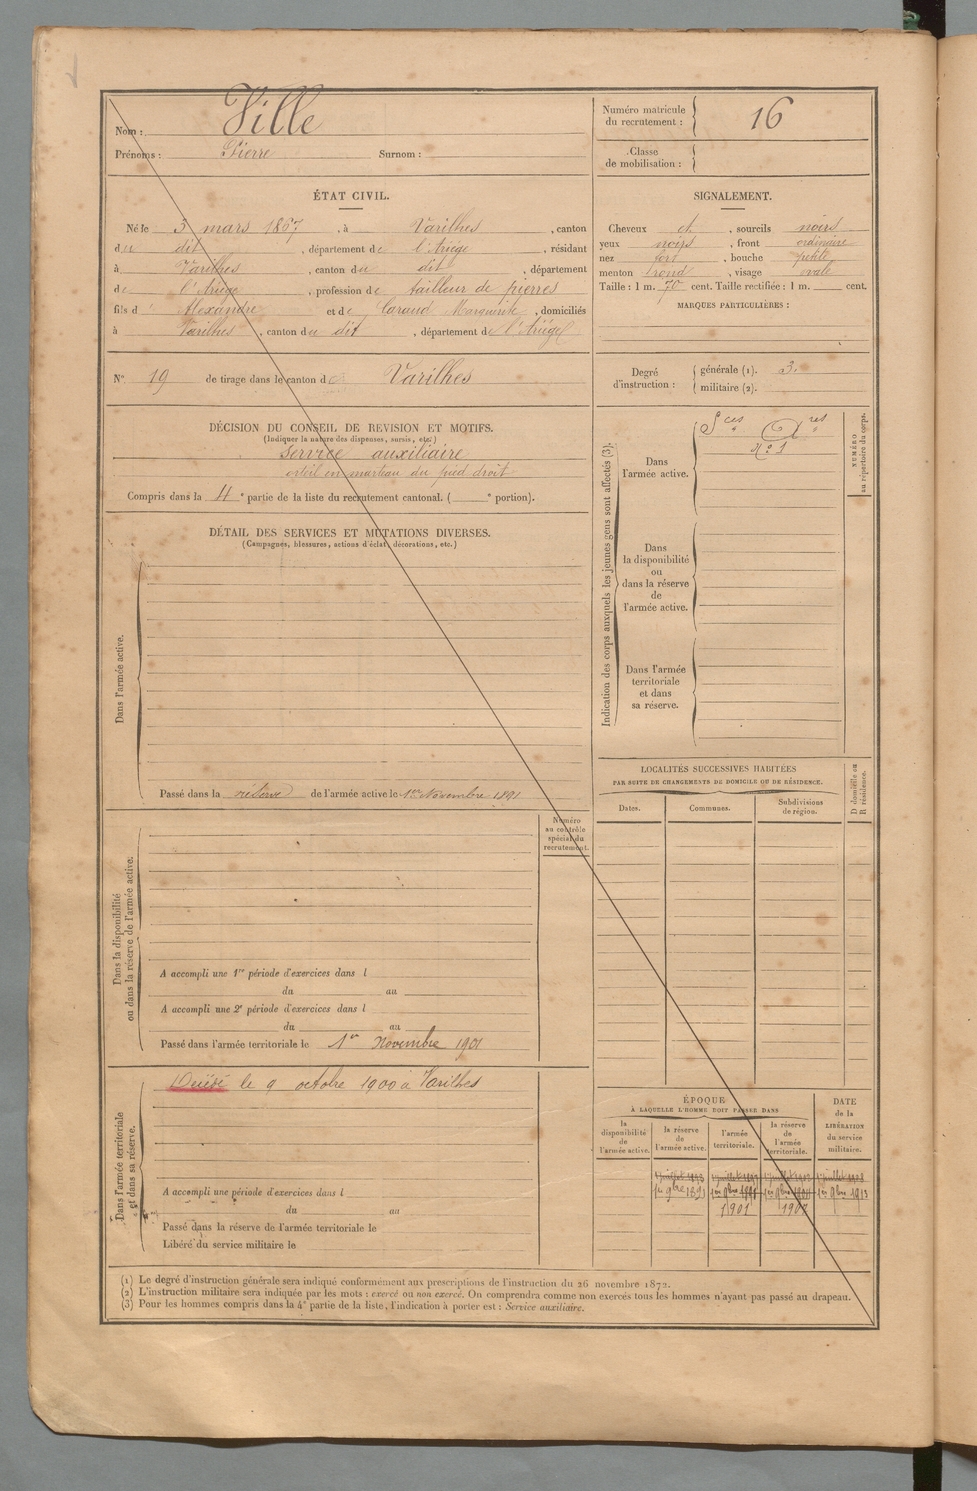 Nom : Ville
Prénoms : Pierre Surnom :
Numéro matricule du recrutement : 16
Classe de mobilisation :
ÉTAT CIVIL.
Né le 3 mars 1867, à Varilhes, canton
du dit, département de l'Ariège, résidant
à Varilhes, canton du dit, département
de l'Ariège, profession de tailleur de pierres
fils d' Alexandre et de Marguerite, domiciliés
à Varilhes, canton du dit, département de l'Ariège
SIGNALEMENT.
Cheveux et, sourcils noirs
yeux noirs, front ordinaire
nez fort, bouche petite
menton rond, visage ovale
Taille : 1 m. 70 cent. Taille rectifiée : 1 m. cent.
MARQUES PARTICULIÈRES :
N° 19 de tirage dans le canton d Varilhes
Degré d'instruction : générale (1). 3.
militaire (2).
DÉCISION DU CONSEIL DE REVISION ET MOTIFS.
(Indiquer la nature des dispenses, sursis, etc.)
Service auxiliaire
orteil en marteau du pied droit
Compris dans la 4e partie de la liste du recrutement cantonal. ( e portion).
DÉTAIL DES SERVICES ET MUTATIONS DIVERSES.
(Campagnes, blessures, actions d'éclat, décorations, etc.)
Dans l'armée active.
Passé dans la réserve de l'armée active le 1er Novembre 1891
Numéro au contrôle spécial du recrutement.
Dans la disponibilité ou dans la réserve de l'armée active.
A accompli une 1re période d'exercices dans l
du au
A accompli une 2e période d'exercices dans l
du au
Passé dans l'armée territoriale le 1er Novembre 1901
Dans l'armée territoriale et dans sa réserve.
Décédé le 9 octobre 1900 à Varilhes
A accompli une période d'exercices dans l
du au
Passé dans la réserve de l'armée territoriale le
Libéré du service militaire le
Indication des corps auxquels les jeunes gens sont affectés (3).
Dans l'armée active.
Sces Ares
N° 1
Dans la disponibilité ou dans la réserve de l'armée active.
Dans l'armée territoriale et dans sa réserve.
NUMÉRO au répertoire du corps.
LOCALITÉS SUCCESSIVES HABITÉES
PAR SUITE DE CHANGEMENTS DE DOMICILE OU DE RÉSIDENCE.
Dates. Communes. Subdivisions de région. D domicile ou R résidence.
ÉPOQUE
À LAQUELLE L'HOMME DOIT PASSER DANS
la disponibilité de l'armée active.
la réserve de l'armée active.
l'armée territoriale.
la réserve de l'armée territoriale.
DATE de la LIBÉRATION du service militaire.
1er 9bre 1891 1er 9bre 1er 9bre 1er 9bre 1913
1901 1907
(1) Le degré d'instruction générale sera indiqué conformément aux prescriptions de l'instruction du 26 novembre 1872.
(2) L'instruction militaire sera indiquée par les mots : exercé ou non exercé. On comprendra comme non exercés tous les hommes n'ayant pas passé au drapeau.
(3) Pour les hommes compris dans la 4e partie de la liste, l'indication à porter est : Service auxiliaire.